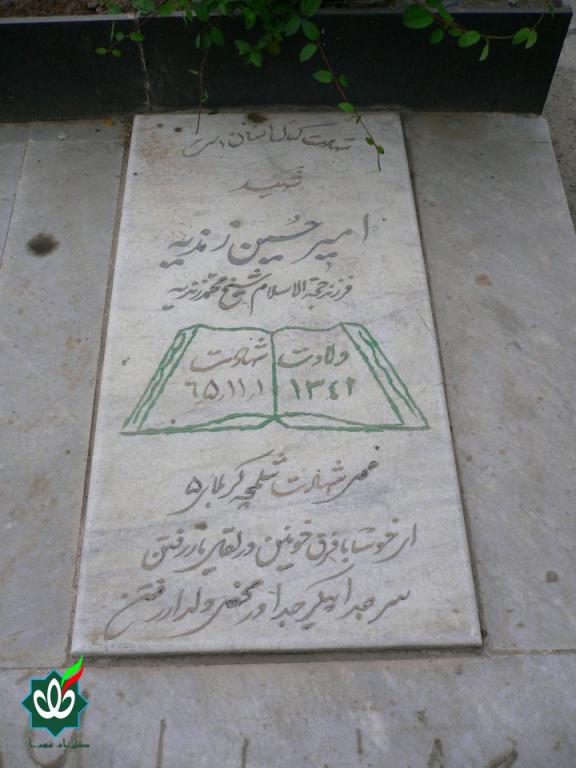 شهادت کمال انسان است
شهید
امیر حسین زندیه
فرزند حجة الاسلام شیخ محمد زندیه
ولادت
۱۳٤۲
شهادت
٦۵,۱۱,۱
شهادت شلمچه کربلای ۵
ای خوشا با فرق خونین در لقای یار رفتن
سر جدا پیکر جدا در محفل دلدار رفتن
گلزار شهدا